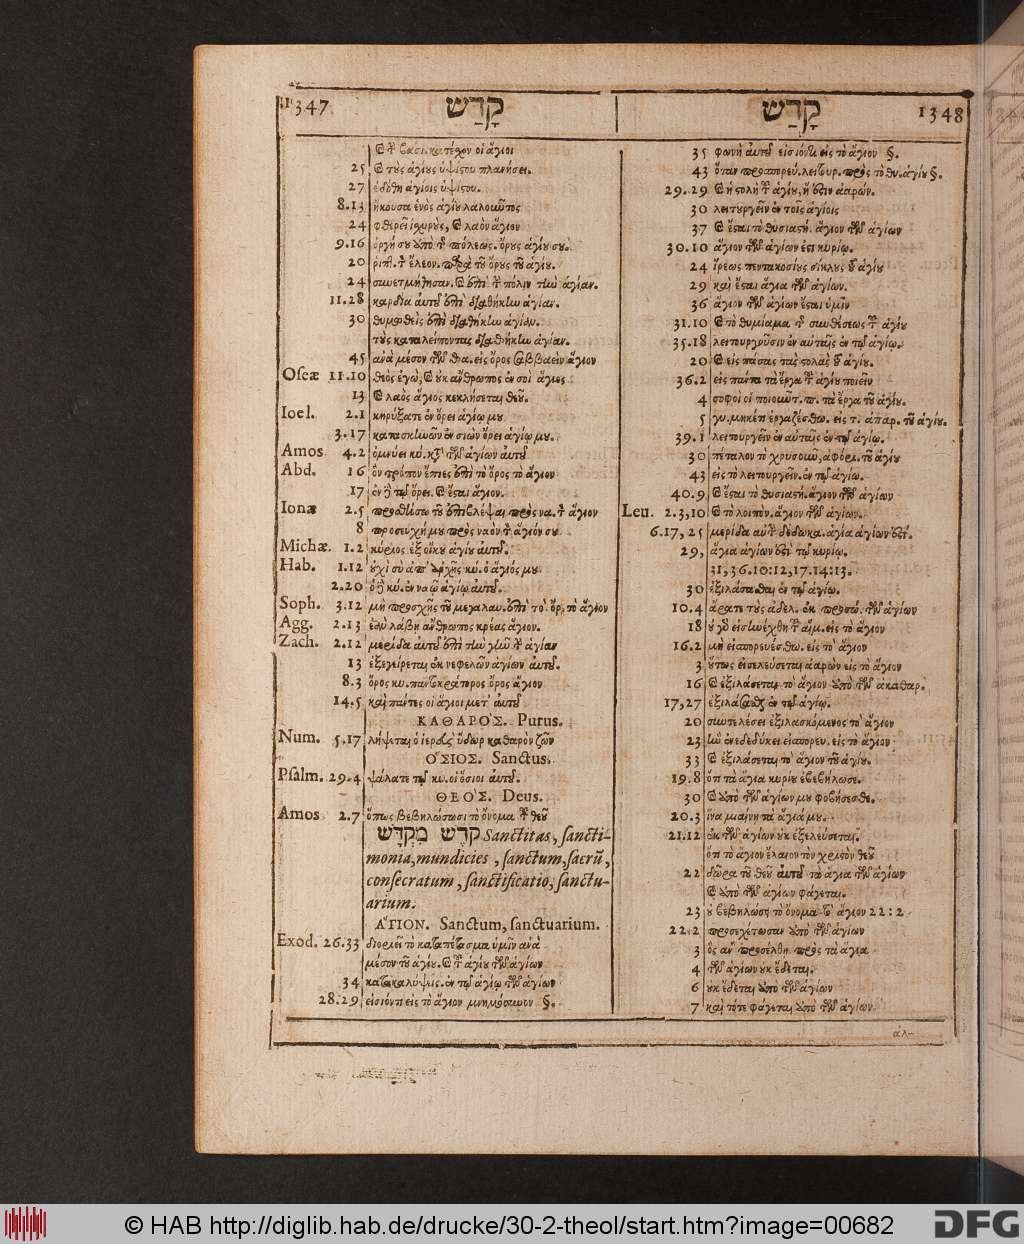 1347 קָדַשׁ
קָדַשׁ 1348
οἱ ἅγιοι
25 τοὺς ἁγίους ὑψίστου
27 ἐδόθη ἁγίοις ὑψίστου.
8.13 ἤκουσα ἑνὸς ἁγίου λαλοῦντος
24 λαὸν ἅγιον
9.16 πόλεως. ὄρους ἁγίου σου.
20 ἔλεον. τοῦ ὄρους τοῦ ἁγίου.
24 πόλιν τὴν ἁγίαν.
11.28 καρδία αὐτοῦ ἐπὶ διαθήκην ἁγίαν.
30 θυμωθεὶς ἐπὶ διαθήκην ἁγίαν.
τοὺς καταλείποντας διαθήκην ἁγίαν.
45 ἀνὰ μέσον τῶν θα. εἰς ὄρος σαββαεὶν ἅγιον
Oseæ 11.10 θεὸς ἐγὼ, καὶ οὐκ ἄνθρωπος ἐν σοὶ ἅγιος
13 καὶ λαὸς ἅγιος κεκλήσεται θεοῦ.
Ioel. 2.1 κηρύξατε ἐν ὄρει ἁγίῳ μου
3.17 κατασκηνῶν ἐν σιὼν ὄρει ἁγίῳ μου.
Amos 4.2 ὀμνύει κύ. τῶν ἁγίων αὐτοῦ
Abd. 16 ὃν τρόπον ἔπιες ἐπὶ τὸ ὄρος τὸ ἅγιον
17 ἐν δὲ τῷ ὄρει. καὶ ἔσται ἅγιον.
Ionæ 2.5 προσθήσω τοῦ ἐπιβλέψαι πρὸς να. τὸν ἅγιον
8 προσευχή μου πρὸς ναὸν τὸν ἅγιόν σου
Michæ. 1.2 κύριος ἐξ οἴκου ἁγίου αὐτοῦ.
Hab. 1.12 οὐχὶ σὺ ἀπ' ἀρχῆς κύ. ὁ ἅγιός μου
2.20 ὁ δὲ κύ. ἐν ναῷ ἁγίῳ αὐτοῦ.
Soph. 3.12 μὴ προσθῇς τοῦ μεγαλαυ. ἐπὶ τὸ ὄρ. τὸ ἅγιον
Agg. 2.13 ἐὰν λάβῃ ἄνθρωπος κρέας ἅγιον.
Zach. 2.12 μερίδα αὐτοῦ ἐπὶ τὴν γῆν τὴν ἁγίαν
13 ἐξεγείρεται ἐκ νεφελῶν ἁγίων αὐτοῦ.
8.3 ὄρος κυ. παντοκράτορος ὄρος ἅγιον
14.5 καὶ πάντες οἱ ἅγιοι μετ' αὐτοῦ
ΚΑΘΑΡΟ'Σ. Purus.
Num. 5.17 λήψεται ὁ ἱερεὺς ὕδωρ καθαρὸν ζῶν
Ὅ'ΣΙΟΣ. Sanctus.
Psalm. 29.4 ψάλατε τῷ κυ. οἱ ὅσιοι αὐτοῦ.
ΘΕΟ'Σ. Deus.
Amos 2.7 ὅπως βεβηλώσωσι τὸ ὄνομα τοῦ θεοῦ
קֹדֶשׁ מִקְדָּשׁ Sanctitas, sancti-
monia, mundicies, sanctum, sacrū,
consecratum, sanctificatio, sanctu-
arium.
ἍΓΙΟΝ. Sanctum, sanctuarium.
Exod. 26.33 διοριεῖ τὸ καταπέτασμα ὑμῖν ἀνὰ
μέσον τοῦ ἁγίου. καὶ τοῦ ἁγίου τῶν ἁγίων
34 κατακαλύψεις. ἐν τῷ ἁγίῳ τῶν ἁγίων
28.29 εἰσιόντι εἰς τὸ ἅγιον μνημόσυνον §.
35 φωνὴ αὐτοῦ εἰσιόντι εἰς τὸ ἅγιον §.
43 ὅταν προσπορεύ. λειτουρ. πρὸς τὸ θυ. ἁγίου §.
29.29 καὶ ἡ στολὴ τοῦ ἁγίου, ἥ ἐστιν ἀαρών.
30 λειτουργεῖν ἐν τοῖς ἁγίοις
37 καὶ ἔσται τὸ θυσιαστή. ἅγιον τῶν ἁγίων
30.10 ἅγιον τῶν ἁγίων ἐστὶ κυρίῳ.
24 ἴρεως πεντακοσίους σίκλους τοῦ ἁγίου
29 καὶ ἔσται ἅγια τῶν ἁγίων.
36 ἅγιον τῶν ἁγίων ἔσται ὑμῖν
31.10 καὶ τὸ θυμίαμα τῆς συνθέσεως τοῦ ἁγίου
35.18 λειτουργοῦσιν ἐν αὐταῖς ἐν τῷ ἁγίῳ.
20 καὶ εἰς πάσας τὰς στολὰς τοῦ ἁγίου.
36.2 εἰς πάντα τὰ ἔργα τοῦ ἁγίου ποιεῖν
4 σοφοὶ οἱ ποιοῦντ. π. τὰ ἔργα τοῦ ἁγίου.
5 γυ. μηκέτι ἐργαζέσθω. εἰς τ. ἀπαρ. τοῦ ἁγίου.
39.1 λειτουργεῖν ἐν αὐταῖς ἐν τῷ ἁγίῳ.
30 πέταλον τὸ χρυσοῦν, ἀφόρι. τοῦ ἁγίου
43 εἰς τὸ λειτουργεῖν. ἐν τῷ ἁγίῳ.
40.9 καὶ ἔσται τὸ θυσιαστή. ἅγιον τῶν ἁγίων
Leu. 2.3,10 καὶ τὸ λοιπὸν. ἅγιον τῶν ἁγίων.
6.17,25 μερίδα αὐτὴν δέδωκα. ἅγια ἁγίων ἐστί.
29, ἅγια ἁγίων ἐστὶ τῷ κυρίῳ.
31,36.10:12,17.14:13.
30 ἐξιλάσασθαι ἐν τῷ ἁγίῳ.
10.4 ἄρατε τοὺς ἀδελ. ἐκ προσώ. τῶν ἁγίων
18 οὐ γὰρ εἰσηνέχθη τοῦ αἵμ. εἰς τὸ ἅγιον
16.2 μὴ εἰσπορευέσθω. εἰς τὸ ἅγιον
3 οὕτως εἰσελεύσεται ἀαρὼν εἰς τὸ ἅγιον
16 καὶ ἐξιλάσεται τὸ ἅγιον ἀπὸ τῶν ἀκαθαρ.
17,27 ἐξιλάσασθαι ἐν τῷ ἁγίῳ.
20 συντελέσει ἐξιλασκόμενος τὸ ἅγιον
23 ἣν ἐνεδεδύκει εἰσπορευ. εἰς τὸ ἅγιον
33 καὶ ἐξιλάσεται τὸ ἅγιον τοῦ ἁγίου.
19.8 ὅτι τὰ ἅγια κυρίου ἐβεβήλωσε.
30 καὶ ἀπὸ τῶν ἁγίων μου φοβήσεσθε.
20.3 ἵνα μιαίνῃ τὰ ἅγιά μου.
21.12 ἐκ τῶν ἁγίων οὐκ ἐξελεύσεται.
ὅτι τὸ ἅγιον ἔλαιον τὸν χριστὸν θεοῦ
22 δῶρα τοῦ θεοῦ αὐτοῦ τὰ ἅγια τῶν ἁγίων
καὶ ἀπὸ τῶν ἁγίων φάγεται.
23 οὐ βεβηλώσῃ τὸ ὄνομα τὸ ἅγιον 22:2
22.2 προσεχέτωσαν ἀπὸ τῶν ἁγίων
3 ὃς ἂν προσέλθῃ πρὸς τὰ ἅγια
4 τῶν ἁγίων οὐκ ἔδεται.
6 οὐκ ἔδεται ἀπὸ τῶν ἁγίων
7 καὶ τότε φάγεται ἀπὸ τῶν ἁγίων
αλ-
© HAB http://diglib.hab.de/drucke/30-2-theol/start.htm?image=00682
DFG